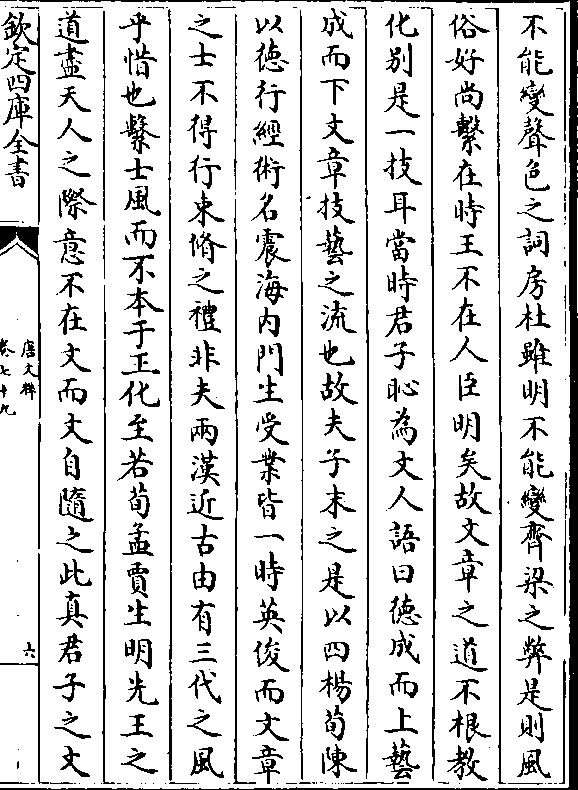 不能變聲色之詞房杜雖明不能變齊梁之弊是則風
俗好尚繫在時王不在人臣明矣故文章之道不根教
化别是一技耳當時君子恥為文人語曰徳成而上藝
成而下文章技藝之流也故夫子末之是以四楊荀陳
以徳行經術名震海内門生受業皆一時英俊而文章
之士不得行束脩之禮非夫兩漢近古由有三代之風
乎惜也繫士風而不本于王化至若荀孟賈生明先王之
道盡天人之際意不在文而文自隨之此真君子之文
欽定四庫全書
唐文粹
卷七十九
六